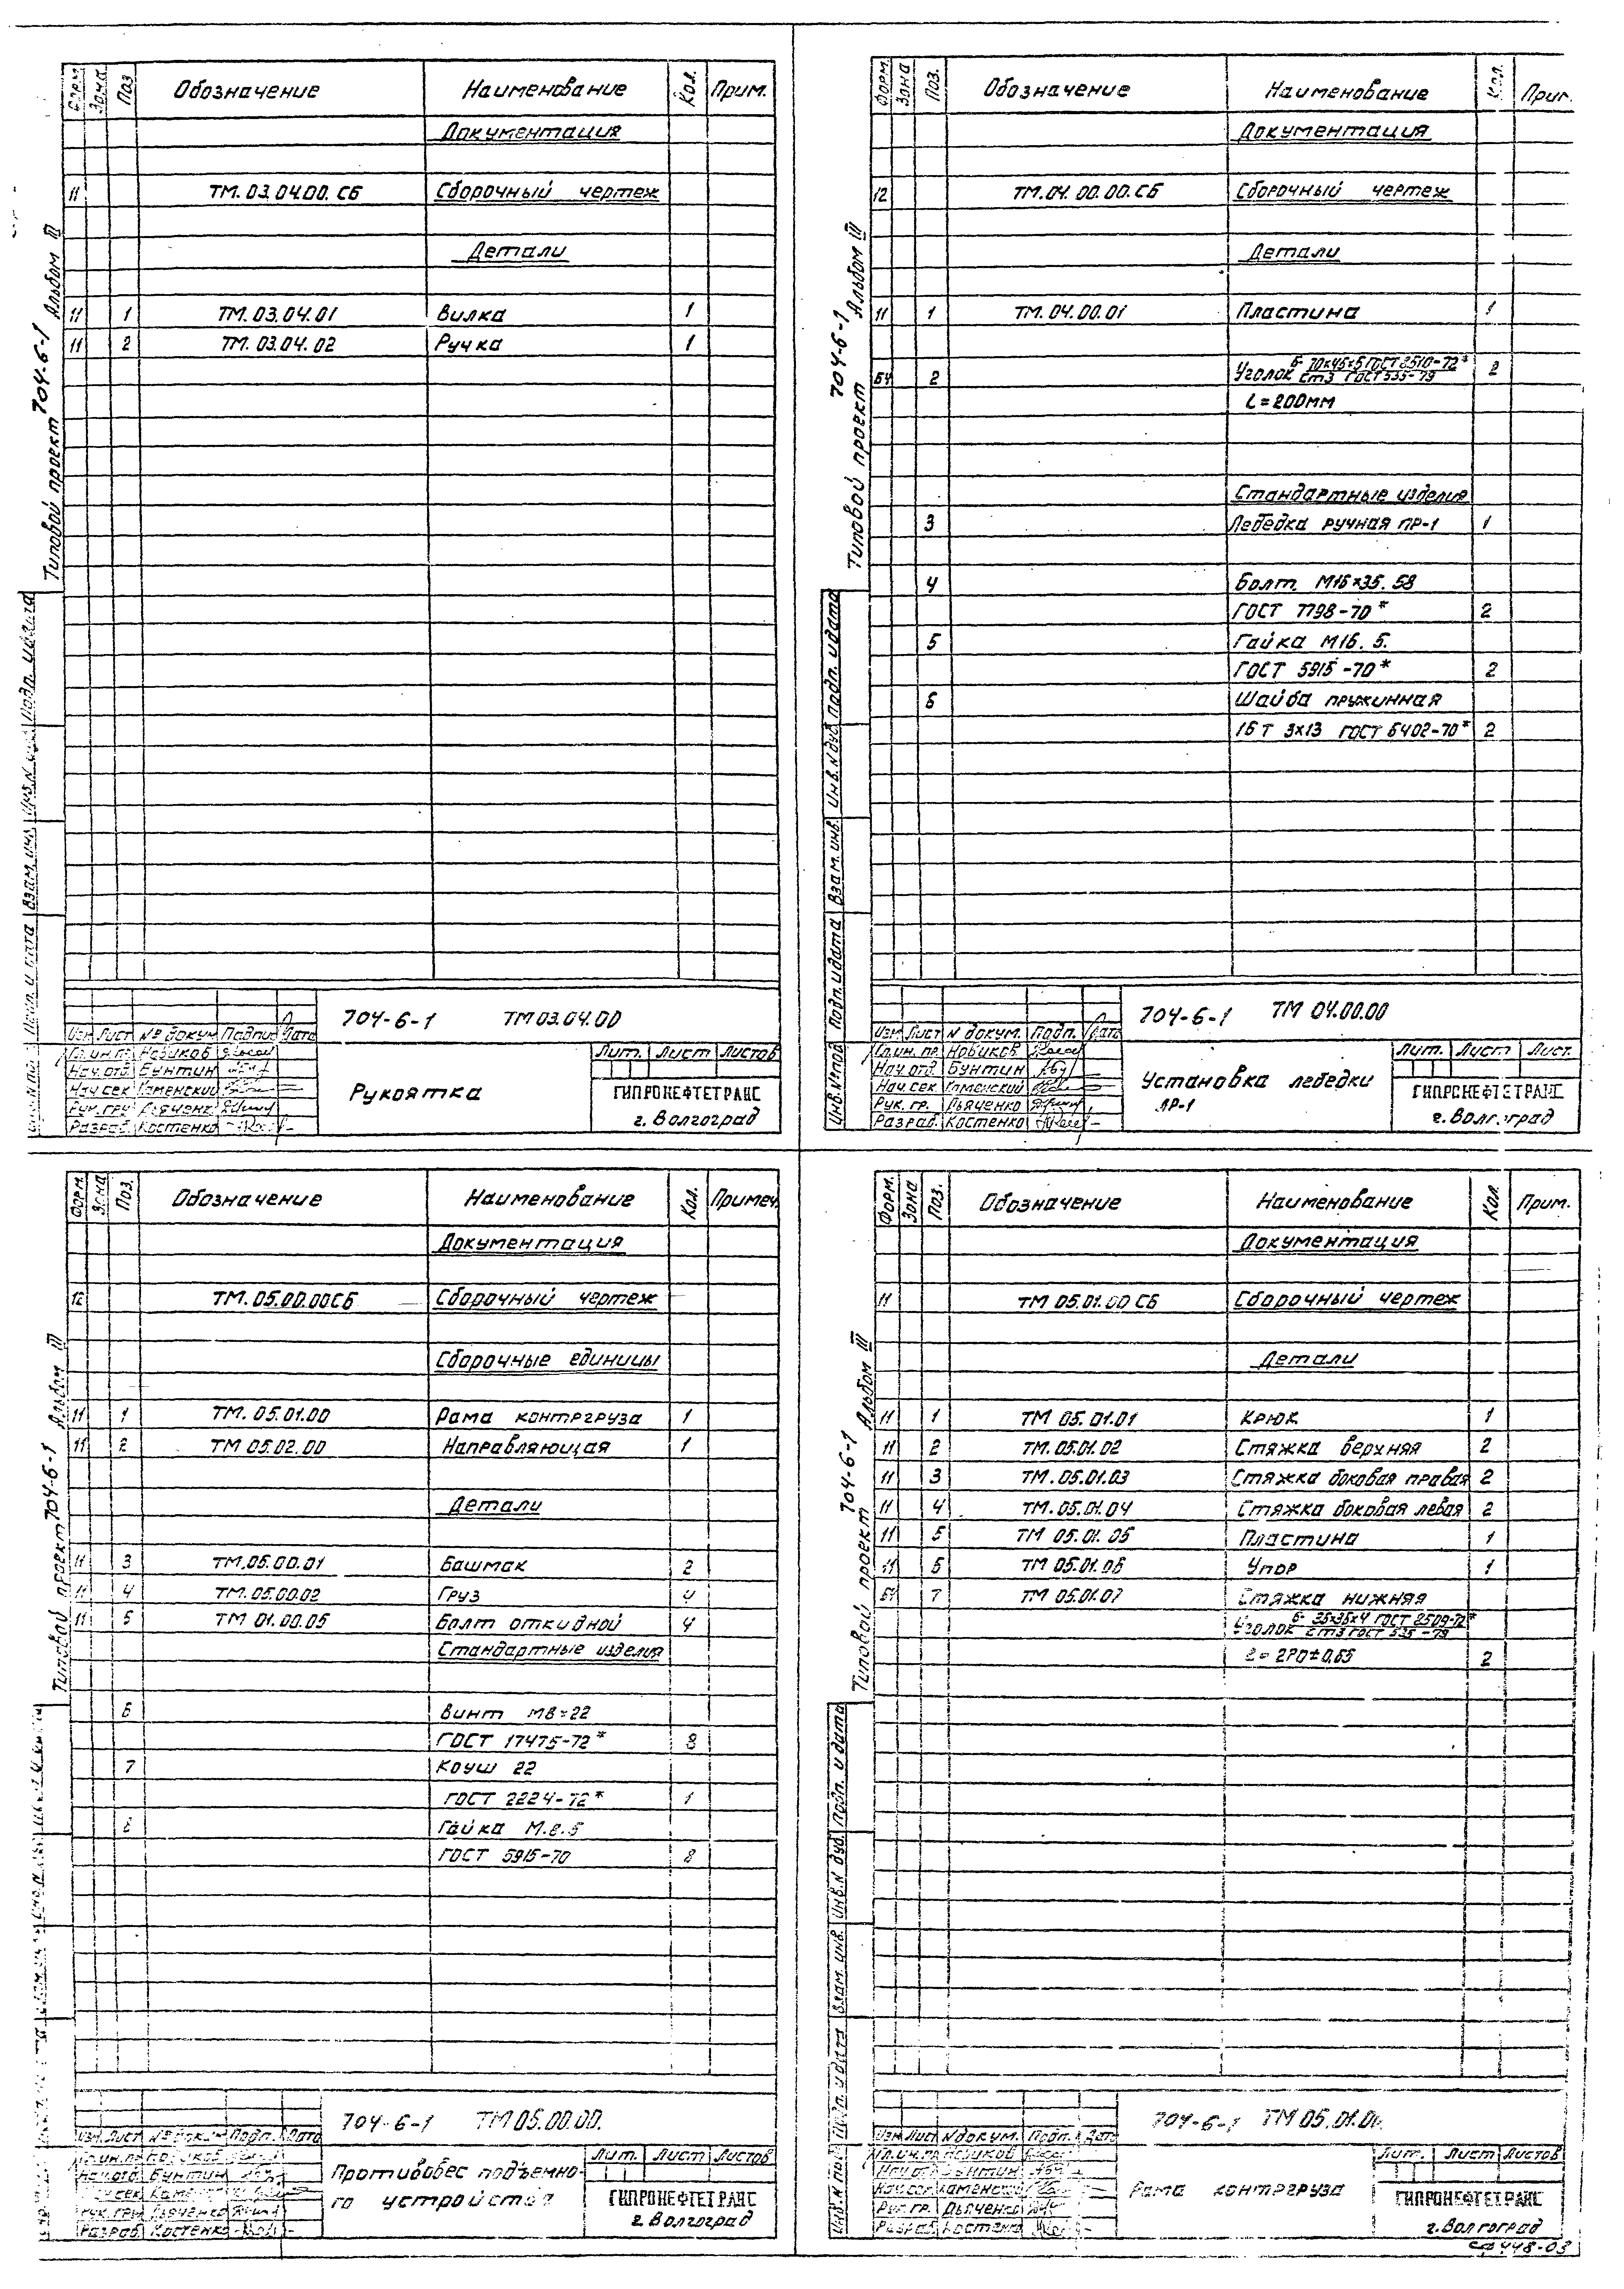 Форм. Зона Поз Обозначение Наименование Кол. Прим.
Документация
11 ТМ.03.04.00.СБ Сборочный чертеж
Детали
11 1 ТМ.03.04.01 Вилка 1
11 2 ТМ.03.04.02 Ручка 1
Типовой проект 704-6-1 Альбом III
704-6-1 ТМ 03.04.00
Изм Лист № докум Подпис Дата
Гл.ин.пр. Новиков
Нач.отд. Бунтин
Нач.сек Каменский
Рук.гру Дьяченк
Разраб. Костенко
Рукоятка
Лит. Лист Листов
ГИПРОНЕФТЕТРАНС
г. Волгоград
Форм. Зона Поз. Обозначение Наименование Кол. Приг.
Документация
12 ТМ.04.00.00.СБ Сборочный чертеж
Детали
11 1 ТМ.04.00.01 Пластина 1
БЧ 2 Уголок Б-70×45×5 ГОСТ 8510-72* Ст3 ГОСТ 535-79 2
L=200мм
Стандартные изделия
3 Лебедка ручная ПР-1 1
4 Болт М16×35.58
ГОСТ 7798-70* 2
5 Гайка М16.5.
ГОСТ 5915-70* 2
6 Шайба пружинная
16 Т 3х13 ГОСТ 6402-70* 2
Типовой проект 704-6-1 Альбом III
Инв.№ под Подп. и дата Взам. инв. Инв.N дуб Подп. и дата
704-6-1 ТМ 04.00.00
Изм Лист N докум. Подп. Дата
Гл.ин.пр. Новиков
Нач.отд. Бунтин
Нач.сек Каменский
Рук.гр. Дьяченко
Разраб. Костенко
Установка лебедки
ЛР-1
Лит. Лист Лист.
ГИПРОНЕФТЕТРАНС
г. Волгоград
Форм. Зона Поз. Обозначение Наименование Кол. Примеч.
Документация
12 ТМ.05.00.00СБ Сборочный чертеж
Сборочные единицы
11 1 ТМ.05.01.00 Рама контргруза 1
11 2 ТМ 05.02.00 Направляющая 1
Детали
11 3 ТМ.05.00.01 Башмак 2
11 4 ТМ.05.00.02 Груз 4
11 5 ТМ 01.00.05 Болт откидной 4
Стандартные изделия
6 Винт М8×22
ГОСТ 17475-72* 8
7 Коуш 22
ГОСТ 2224-72* 1
8 Гайка М.8.5
ГОСТ 5915-70 8
Типовой проект 704-6-1 Альбом III
704-6-1 ТМ 05.00.00.
Изм. Лист № докум Подп. Дата
Нач.отд. Бунтин
Рук.гры Дьяченко
Разраб Костенко
Противовес подъемно-
го устройства
Лит. Лист Листов
ГИПРОНЕФТЕТРАНС
г. Волгоград
Форм. Зона Поз. Обозначение Наименование Кол. Прим.
Документация
11 ТМ 05.01.00 СБ Сборочный чертеж
Детали
11 1 ТМ 05.01.01 Крюк 1
11 2 ТМ.05.01.02 Стяжка верхняя 2
11 3 ТМ.05.01.03 Стяжка боковая правая 2
11 4 ТМ.05.01.04 Стяжка боковая левая 2
11 5 ТМ 05.01.05 Пластина 1
11 6 ТМ 05.01.06 Упор 1
БЧ 7 ТМ 05.01.07 Стяжка нижняя
Уголок Б-35×35×4 ГОСТ 8509-72* Ст3 ГОСТ 535-79
ℓ=270±0,65 2
Типовой проект 704-6-1 Альбом III
Инв.N под Подп. и дата Взам. инв. Инв.N дуб. Подп. и дата
704-6-1 ТМ 05.01.00.
Изм Лист N докум. Подп. Дата
Гл.ин.пр Новиков
Нач.сек Каменский
Рук.гр. Дьяченко
Разраб. Костенко
Рама контргруза
Лит. Лист Листов
ГИПРОНЕФТЕТРАНС
г. Волгоград
СФ 448-03